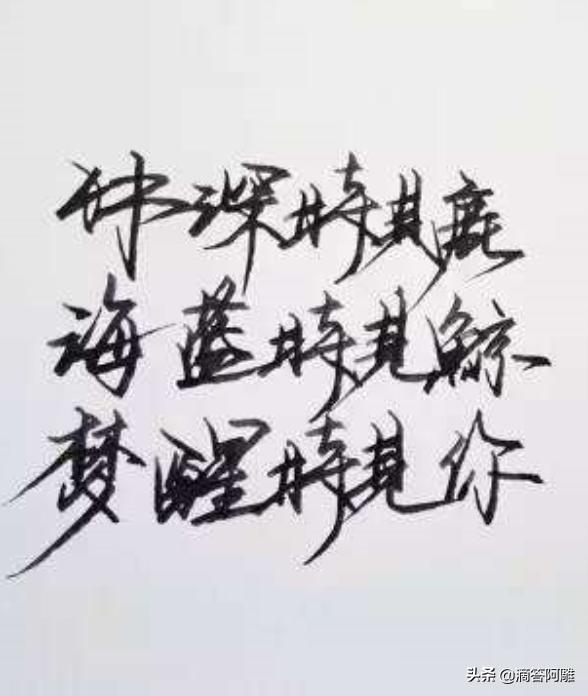 林深時見鹿
海蓝時見鲸
梦醒時見你
头条 @滴答阿雕